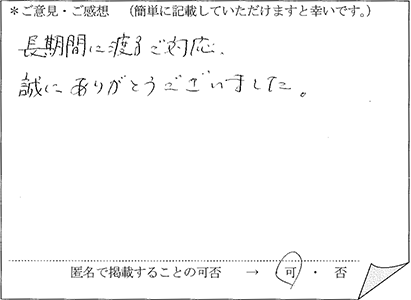 ＊ご意見・ご感想　（簡単に記載していただけますと幸いです。）
長期間に渡るご対応、
誠にありがとうございました。
匿名で掲載することの可否　→　可　・　否